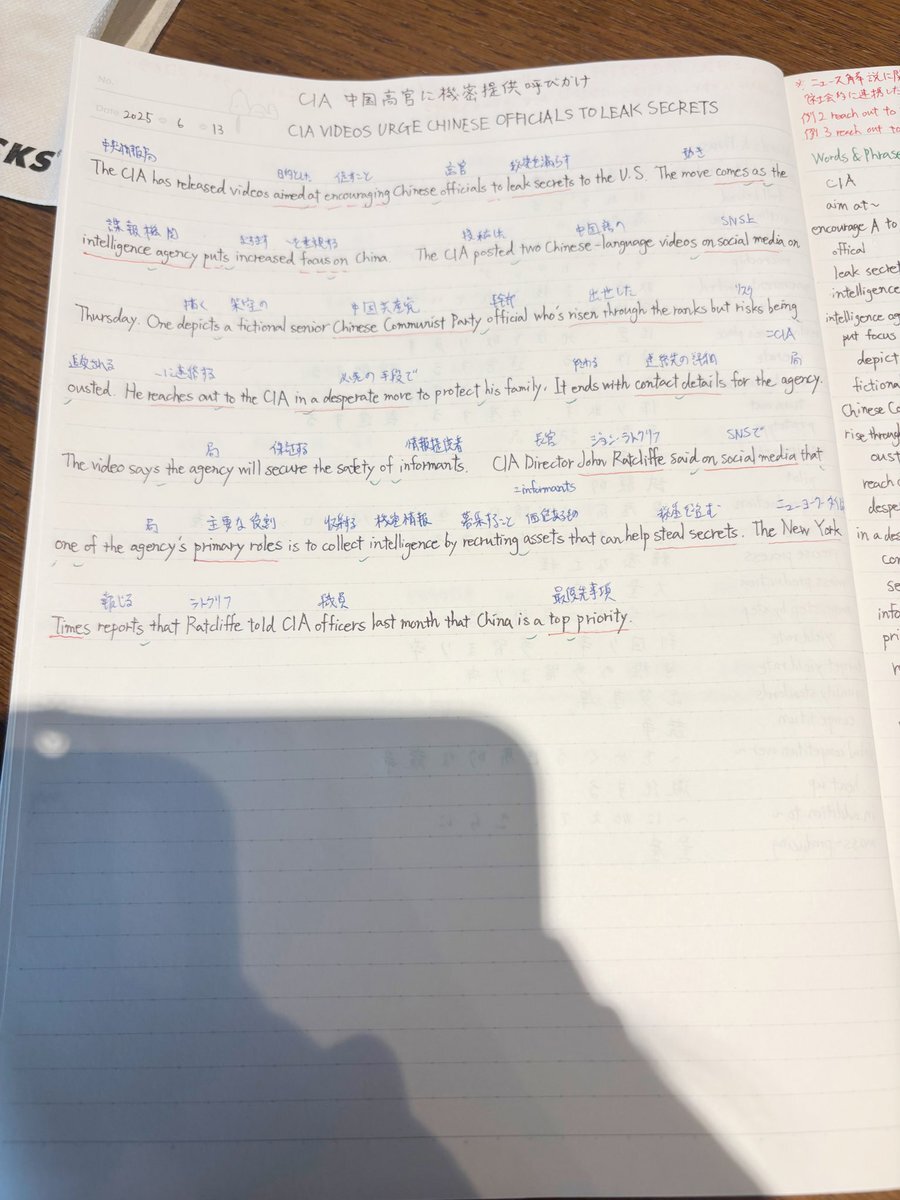 No.
CIA 中国高官に機密提供呼びかけ
Date 2025 6 13
CIA VIDEOS URGE CHINESE OFFICIALS TO LEAK SECRETS
中央情報局 目的とした 促すこと 高官 秘密を漏らす 動き
The CIA has released videos aimed at encouraging Chinese officials to leak secrets to the U.S. The move comes as the
諜報機関 ~を重視する 投稿した 中国語の SNS上
intelligence agency puts increased focus on China. The CIA posted two Chinese-language videos on social media on
描く 架空の 中国共産党 幹部 出世した リスク
Thursday. One depicts a fictional senior Chinese Communist Party official who's risen through the ranks but risks being
=CIA
追放される ~に連絡する 必死の手段で 終わる 連絡先の詳細 局
ousted. He reaches out to the CIA in a desperate move to protect his family. It ends with contact details for the agency.
局 保証する 情報提供者 長官 ジョン・ラトクリフ SNSで
The video says the agency will secure the safety of informants. CIA Director John Ratcliffe said on social media that
=informants
局 主要な役割 収集する 機密情報 募集すること 価値あるもの 秘密を盗む
one of the agency's primary roles is to collect intelligence by recruting assets that can help steal secrets. The New York
報じる ラトクリフ 職員 最優先事項
Times reports that Ratcliffe told CIA officers last month that China is a top priority.
KS
※ ニュース解説に
例2 reach out to
例3 reach out to
Words & Phrase
CIA
aim at~
encourage A to
offical
leak secret
intelligence
intelligence ag
put focus
depict
fictional
Chinese Co
rise through
oust
reach o
despe
in a des
con
se
info
pri